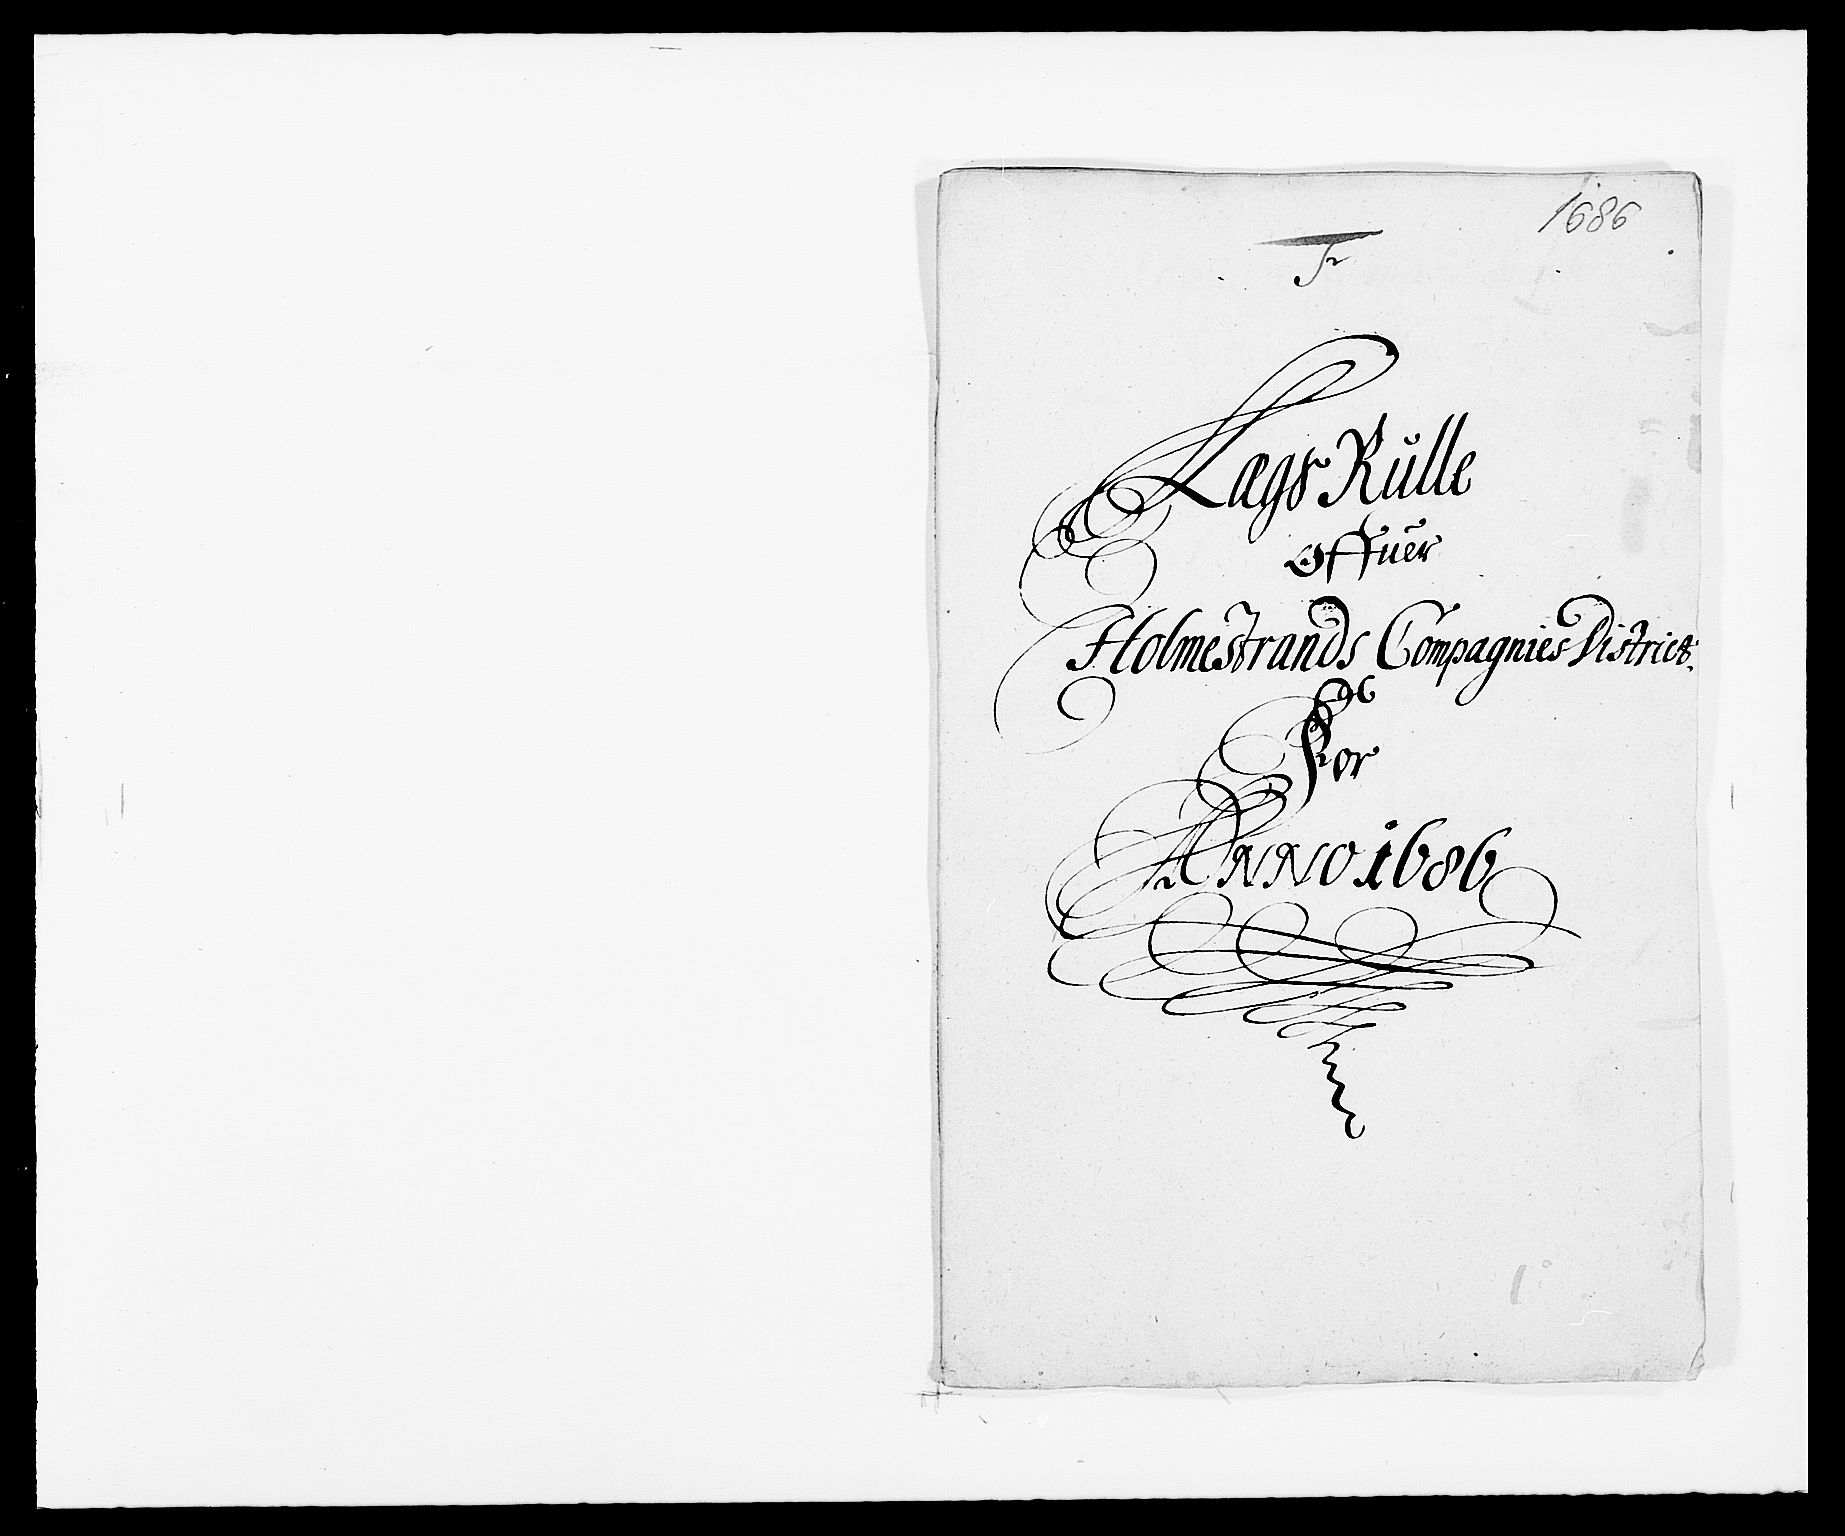 1686
Lægs Rulle
offuer
Holmestrands Compagnies District
For
ANNO 1686